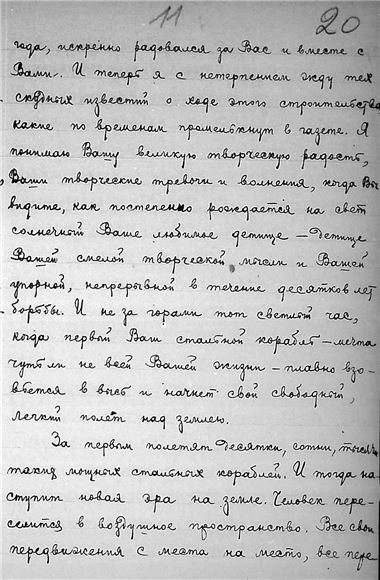 11 20
года, искренно радовался за Вас и вместе с
Вами. И теперь я с нетерпением жду тех
скудных известий о ходе этого строительства,
какие по временам промелькнут в газете. Я
понимаю Вашу великую творческую радость,
Ваши творческие тревоги и волнения, когда Вы
видите, как постепенно рождается на свет
солнечный Ваше любимое детище – детище
Вашей смелой творческой мысли и Вашей
упорной, непрерывной в течение десятков лет
борьбы. И не за горами тот светлый час,
когда первый Ваш стальной корабль – мечта
чуть ли не всей Вашей жизни – плавно взо-
вьется в высь и начнет свой свободный,
легкий полет над землею.
За первым полетят десятки, сотни, тысячи
таких мощных стальных кораблей. И тогда на-
ступит новая эра на земле. Человек пере-
селится в воздушное пространство. Все свои
передвижения с места на место, все пере-